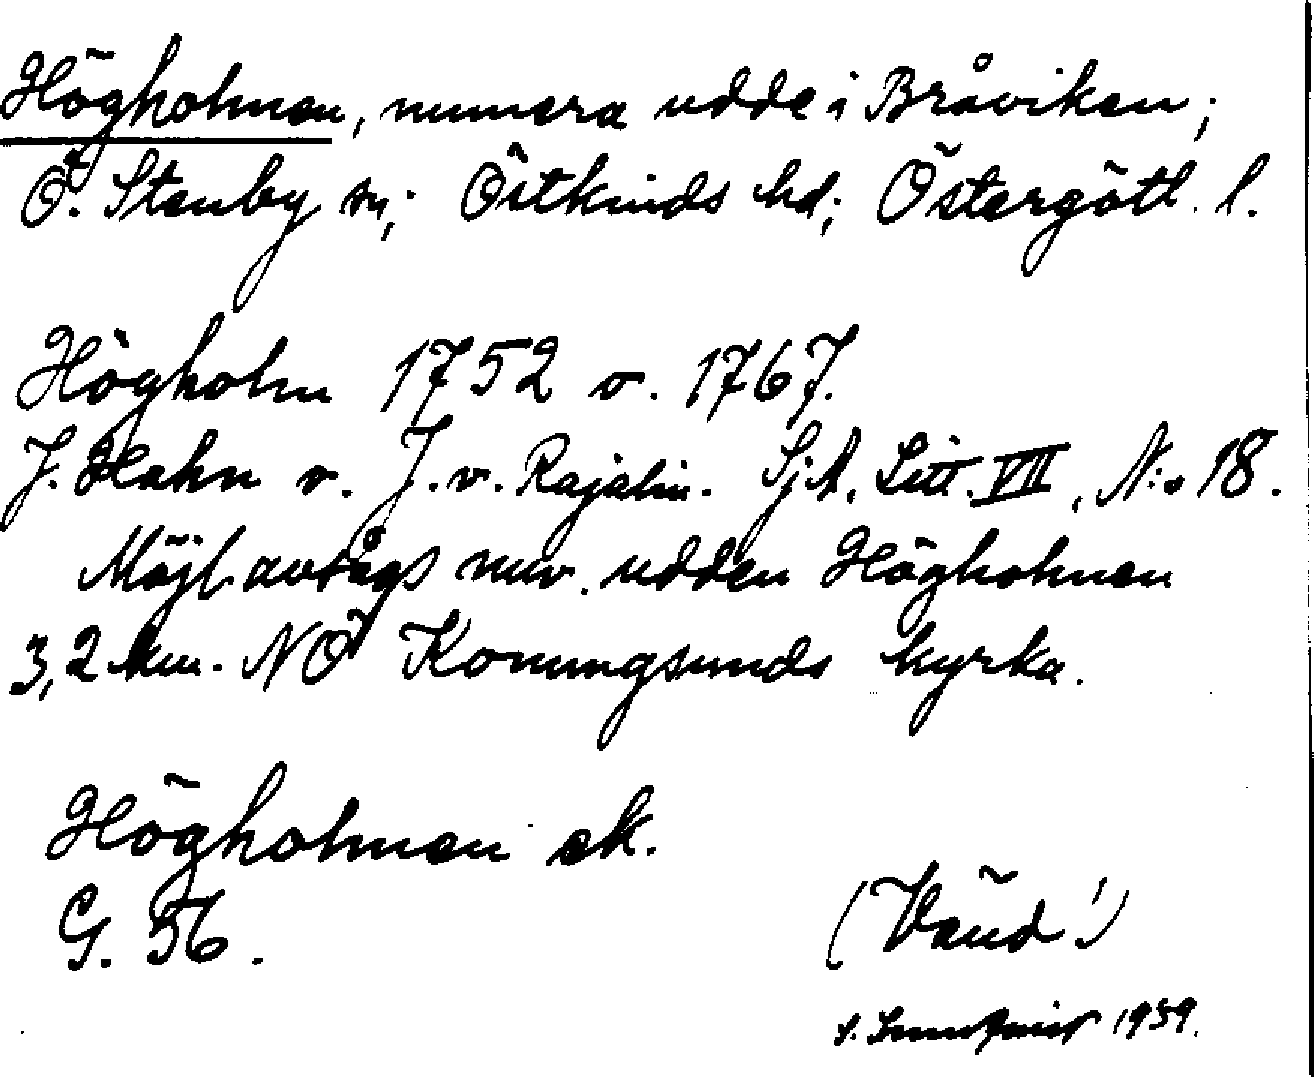 Högholmen, numera udde i Bråviken;
Ö. Stenby sn; Östkinds hd; Östergötl. l.
Högholm 1752 o. 1767.
J. Hahn o. J. v. Rajalin. SjA, Litt. VII, N:o 18.
Möjl. avsågs nuv. udden Högholmen
3,2 km. NÖ Konungsunds kyrka.
Högholmen ek.
G. 56.
(Vänd!)
1959.